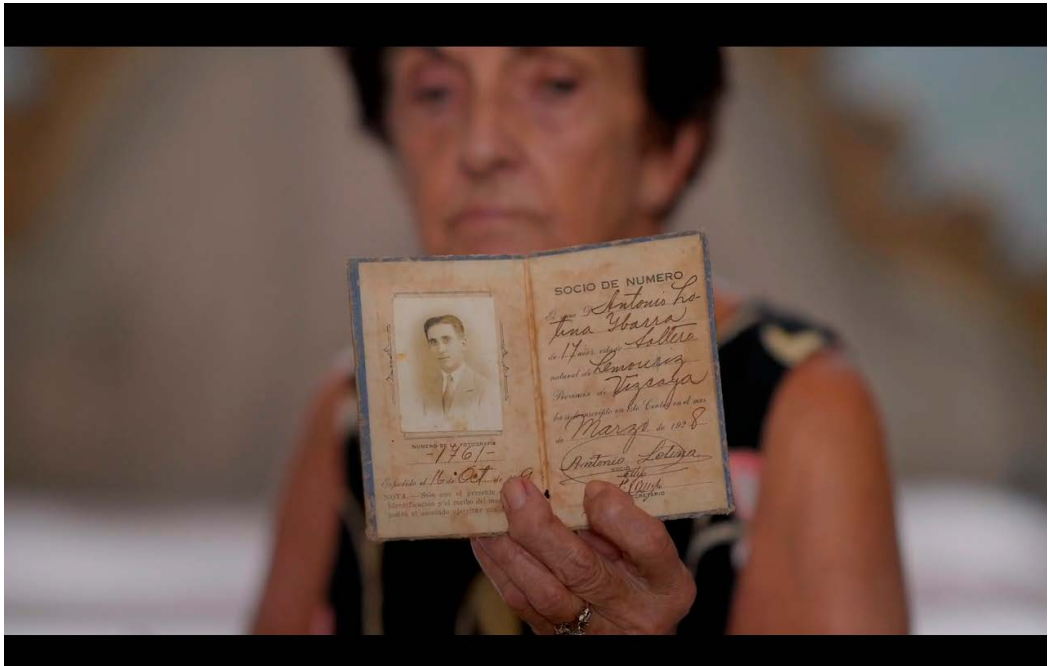 NUMERO DE LA FOTOGRAFIA
-1761-
Expedido el 16 de Oct de
NOTA.—Sólo con el presente
identificación y el recibo del mes
podrá el asociado
SOCIO DE NUMERO
D Antonio Lo-
tina Ybarra
de 17 años, estado Soltero
natural de Lemoniz
Provincia de Vizcaya
ha sido inscripto en este Centro en el mes
de Marzo de 1928
Antonio Lotina
SECRETARIO